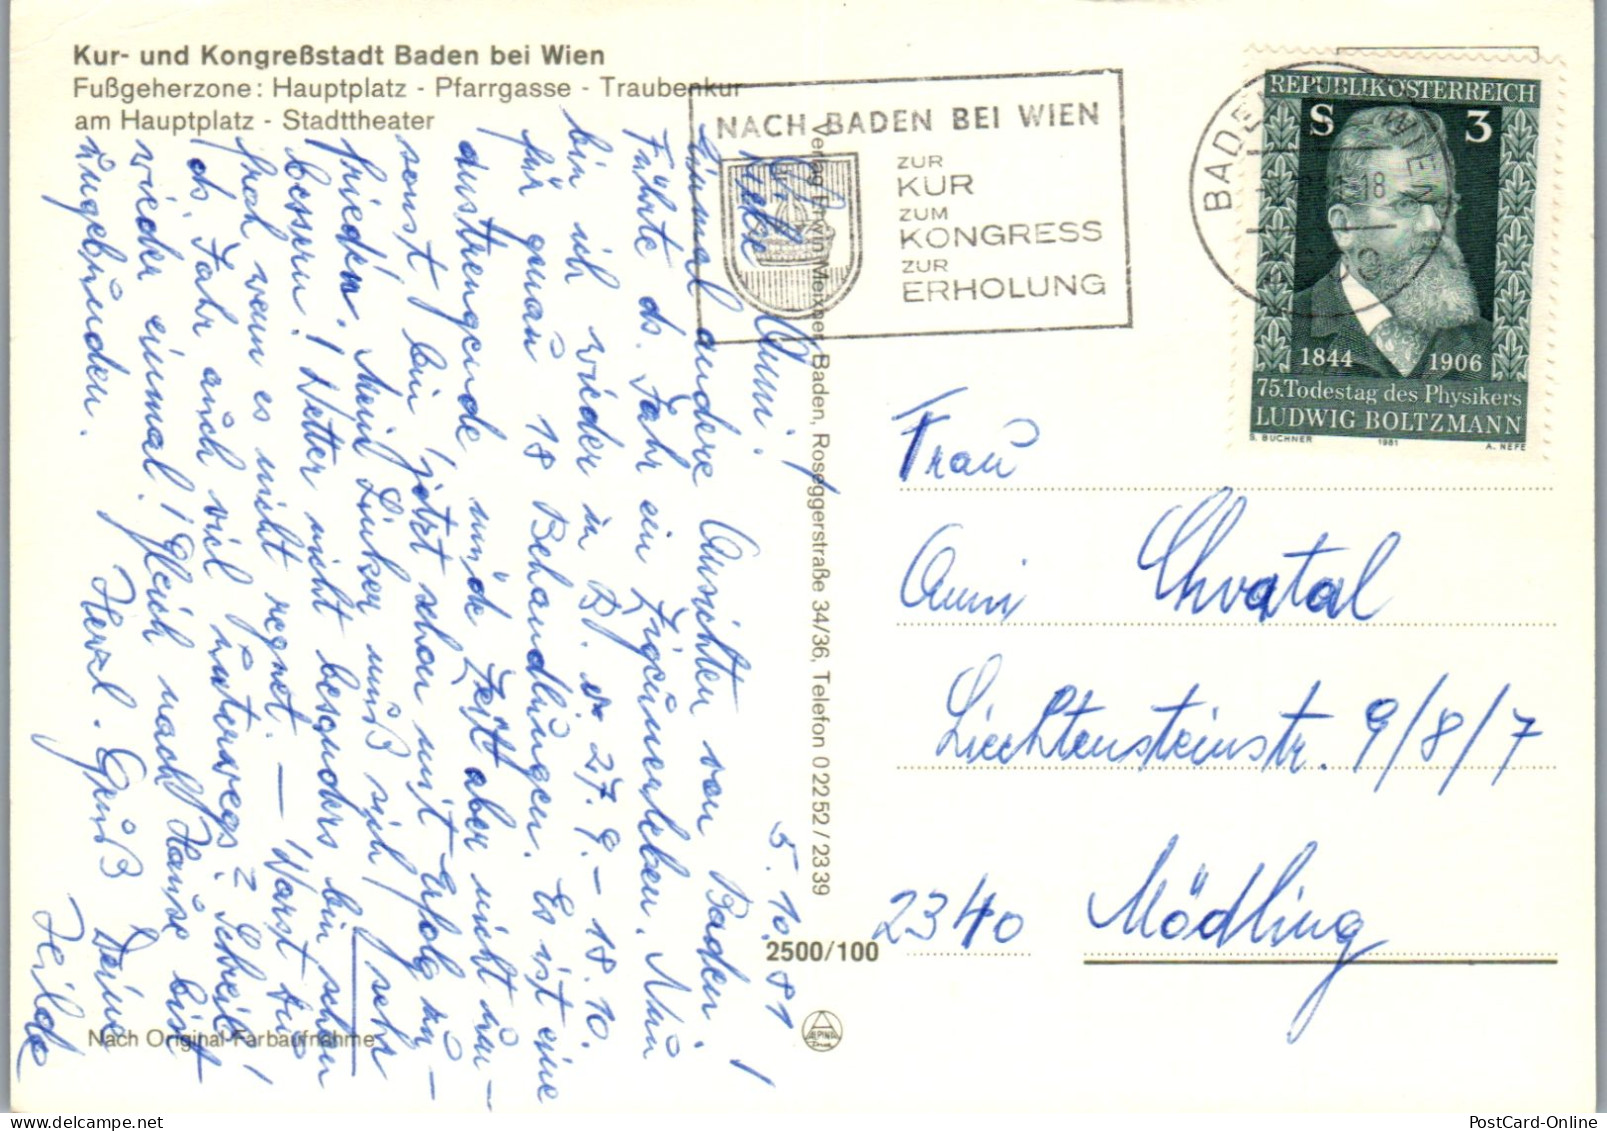 Kur- und Kongreßstadt Baden bei Wien
Fußgeherzone: Hauptplatz - Pfarrgasse - Traubenkur
am Hauptplatz - Stadttheater
NACH BADEN BEI WIEN
ZUR
KUR
ZUM
KONGRESS
ZUR
ERHOLUNG
BADEN WIEN
18
REPUBLIK ÖSTERREICH
S 3
1844 1906
75.Todestag des Physikers
LUDWIG BOLTZMANN
S. BUCHNER 1981 A. NEFE
5. 10. 81
Liebe Anni!
Einmal andere Ansichten von Baden!
Führte ds. Jahr ein Zigeunerleben. Nun
bin ich wieder in B. 27. 9. – 18. 10.
für genau 18 Behandlungen. Es ist eine
anstrengende müde Zeit aber nicht um-
sonst bin jetzt schon mit Erfolg zu-
frieden. Mein Linker muß sich sehr
bessern! Wetter nicht besonders bin schon
froh wenn es nicht regnet. – Warst Du
ds. Jahr auch viel unterwegs? Schreib
wieder einmal! gleich nach Hause bist
angebunden.
Herzl. Grüß Deine
Hilde
Verlag Erwin Meixner, Baden, Roseggerstraße 34/36, Telefon 0 22 52 / 23 39
Frau
Anni Chvatal
Liechtensteinstr. 9/8/7
2340 Mödling
2500/100
Nach Original-Farbaufnahme
PostCard-Online